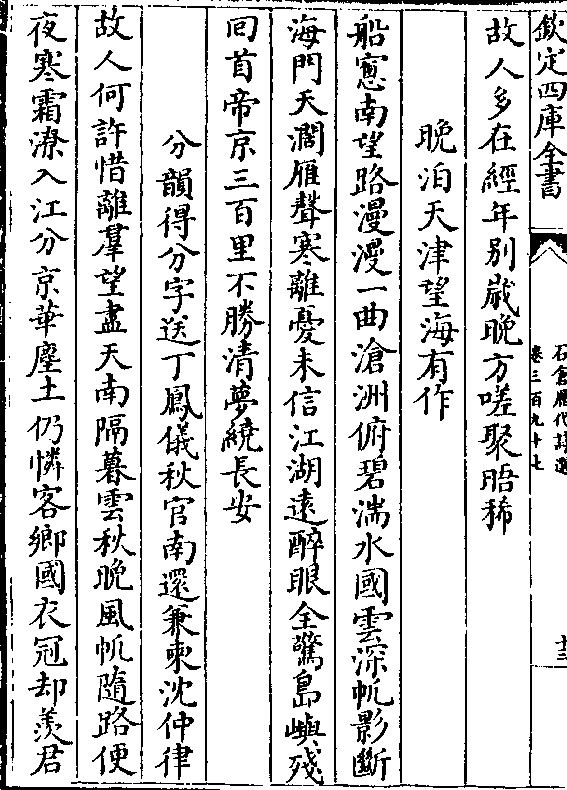 欽定四庫全書
石倉歷代詩選
卷三百九十七
十三
故人多在經年别嵗晚方嗟聚晤稀
晚泊天津望海有作
船窻南望路漫漫一曲滄洲俯碧湍水國雲深帆影斷
海門天濶雁聲寒離憂未信江湖遠醉眼全驚島嶼殘
回首帝京三百里不勝清夢繞長安
分韻得分字送丁鳳儀秋官南還兼柬沈仲律
故人何許惜離羣望盡天南隔暮雲秋晚風帆隨路便
夜寒霜潦入江分京華塵土仍憐客鄉國衣冠却羨君